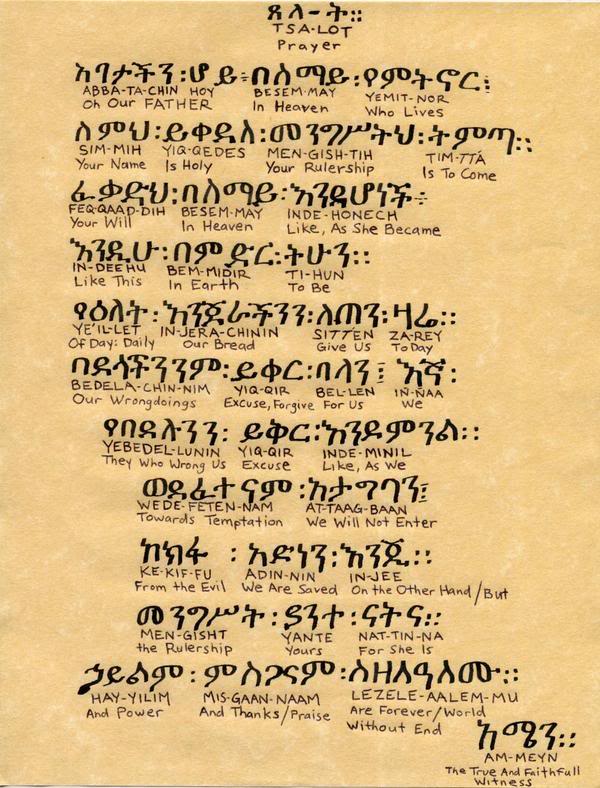 ጸለ-ት፡፡
TSA-LOT
Prayer
አባታችን፡ሆይ፥በስማይ፡የምትኖር፤
ABBA-TA-CHIN HOY BESEM-MAY YEMIT-NOR
Oh Our FATHER In Heaven Who Lives
ስምህ፡ይቀደስ፡መንግሥትህ፡ትምጣ፡፡
SIM-MIH YIQ-QEDES MEN-GISH-TIH TIM-TTÁ
Your Name Is Holy Your Rulership Is To Come
ፈቃድህ፡በስማይ፡እንደሆነች፥
FEQ-QAAD-DIH BESEM-MAY INDE-HONECH
Your Will In Heaven Like, As She Became
እንዲሁ፡በምድር፡ትሁን፡፡
IN-DEEHU BEM-MIDIR TI-HUN
Like This In Earth To Be
የዕለት፡እንጀራችንን፡ለጠን፡ዛሬ፡፡
YE'IL-LET IN-JERA-CHININ SITTEN ZA-REY
Of Day: Daily Our Bread Give Us ToDay
በደላችንንም፡ይቀር፡በለን፤ እኛ፡
BEDELA-CHIN-NIM YIQ-QIR BEL-LEN IN-ÑAA
Our Wrongdoings Excuse, Forgive For Us We
የበደሉንን፡ ይቅር፡እንደምንል፡፡
YEBEDEL-LUNIN YIQ-QIR INDE-MINIL
They Who Wrong Us Excuse Like, As We
ወደፈተናም፡አታግባን፤
WEDE-FETEN-NAM AT-TAAG-BAAN
Towards Temptation We Will Not Enter
ከክፋ ፡ አድነን፡እንጂ፡፡
KE-KIF-FU ADIN-NIN IN-JEE
From the Evil We Are Saved On the Other Hand/But
መንግሥት፡ያንተ፡ናትና፡፡
MEN-GISHT YANTE NAT-TIN-NA
the Rulership Yours For She Is
ኃይልም፡ምስጋናም፡ስዘለዓለሙ፡፡
HAY-YILIM MIS-GAAN-NAAM LEZELE-AALEM-MU
And Power And Thanks/Praise Are Forever/World
Without End
አሜን፡፡
AM-MEYN
The True And Faithfull
Witness